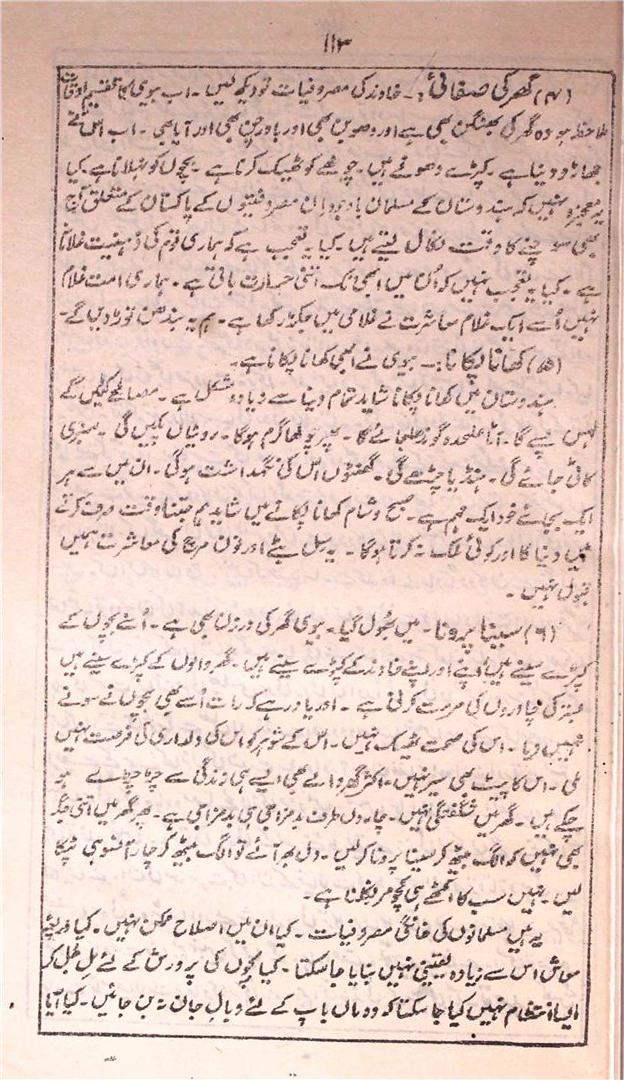 ۱۱۳
(۴) گھر کی صفائی:۔ خاوند کی مصروفیات تو دیکھ لیں۔ اب بیوی کا تقسیم اوقات
ملاحظہ ہو وہ گھر کی بھنگن بھی ہے اور دھوبن بھی اور باورچن بھی اور آیا بھی۔ اب اس نے
جھاڑو دینا ہے۔ کپڑے دھونے ہیں۔ چولھے کو ٹھیک کرنا ہے۔ بچوں کو نہلانا ہے کیا
یہ معجزہ نہیں کہ ہندوستان کے مسلمان باوجود ان مصروفیتوں کے پاکستان کے متعلق آج
بھی سوچنے کا وقت نکال لیتے ہیں۔ کیا یہ تعجب ہے کہ ہماری قوم کی ذہنیت غلامانہ
ہے۔ کیا یہ تعجب نہیں کہ اُن میں ابھی تک اتنی حرارت باقی ہے۔ ہماری امت غلام
نہیں اُسے ایک غلام معاشرت نے غلامی میں جکڑ رکھا ہے۔ ہم یہ بندھن توڑ دیں گے۔
(۵) کھانا پکانا:۔ بیوی نے ابھی کھانا پکانا ہے۔
ہندوستان میں کھانا پکانا شاید تمام دنیا سے زیادہ مشکل ہے۔ مصالحے کٹیں گے
لہسن پسے گا۔ آٹا علیحدہ گوندھا جائے گا۔ پھر چولھا گرم ہوگا۔ روٹیاں پکیں گی۔ سبزی
کاٹی جائے گی۔ ہنڈیا چڑھے گی۔ گھنٹوں اس کی نگہداشت ہوگی۔ ان میں سے ہر
ایک بجائے خود ایک مہم ہے۔ صبح و شام کھانا پکانے میں شاید ہم جتنا وقت صرف کرتے
ہیں دنیا کا اور کوئی ملک نہ کرتا ہوگا۔ یہ سل بٹے اور نون مرچ کی معاشرت ہمیں
قبول نہیں۔
(۶) سینا پرونا۔ میں بھول گیا۔ بیوی گھر کی درزن بھی ہے۔ اُسنے بچوں کے
کپڑے سینے ہیں اپنے اور اپنے خاوند کے کپڑے سینے ہیں۔ گھر والوں کے کپڑے سینے ہیں
بستر کی چادروں کی مرمت کرنی ہے۔ اور یاد رہے کہ رات اُسے بھی بچوں نے سونے
نہیں دیا۔ اس کی صحت ٹھیک نہیں۔ اس کے شوہر کو اس کی دلداری کی فرصت نہیں
ملی۔ اس کا پیٹ بھی سیر نہیں۔ اکثر گھر والے بھی ایسے ہی زندگی سے چڑچڑے ہو
چکے ہیں۔ گھر میں شگفتگی نہیں۔ چاروں طرف بدمزاجی ہی بدمزاجی ہے۔ پھر گھر میں اتنی جگہ
بھی نہیں کہ الگ بیٹھ کر سینا پرونا کر لیں۔ دل بھر آئے تو الگ بیٹھ کر چار آنسو ہی ٹپکا
لیں۔ یہیں سب کا اکٹھے ہی کچومر نکلنا ہے۔
یہ ہیں مسلمانوں کی خانگی مصروفیات۔ کیا ان میں اصلاح ممکن نہیں۔ کیا ذریعۂ
معاش اس سے زیادہ یقینی نہیں بنایا جا سکتا۔ کیا بچوں کی پرورش کے لئے مل جل کر
ایسا انتظام نہیں کیا جا سکتا کہ وہ ماں باپ کے لئے وبال جان نہ بن جائیں۔ کیا آیا